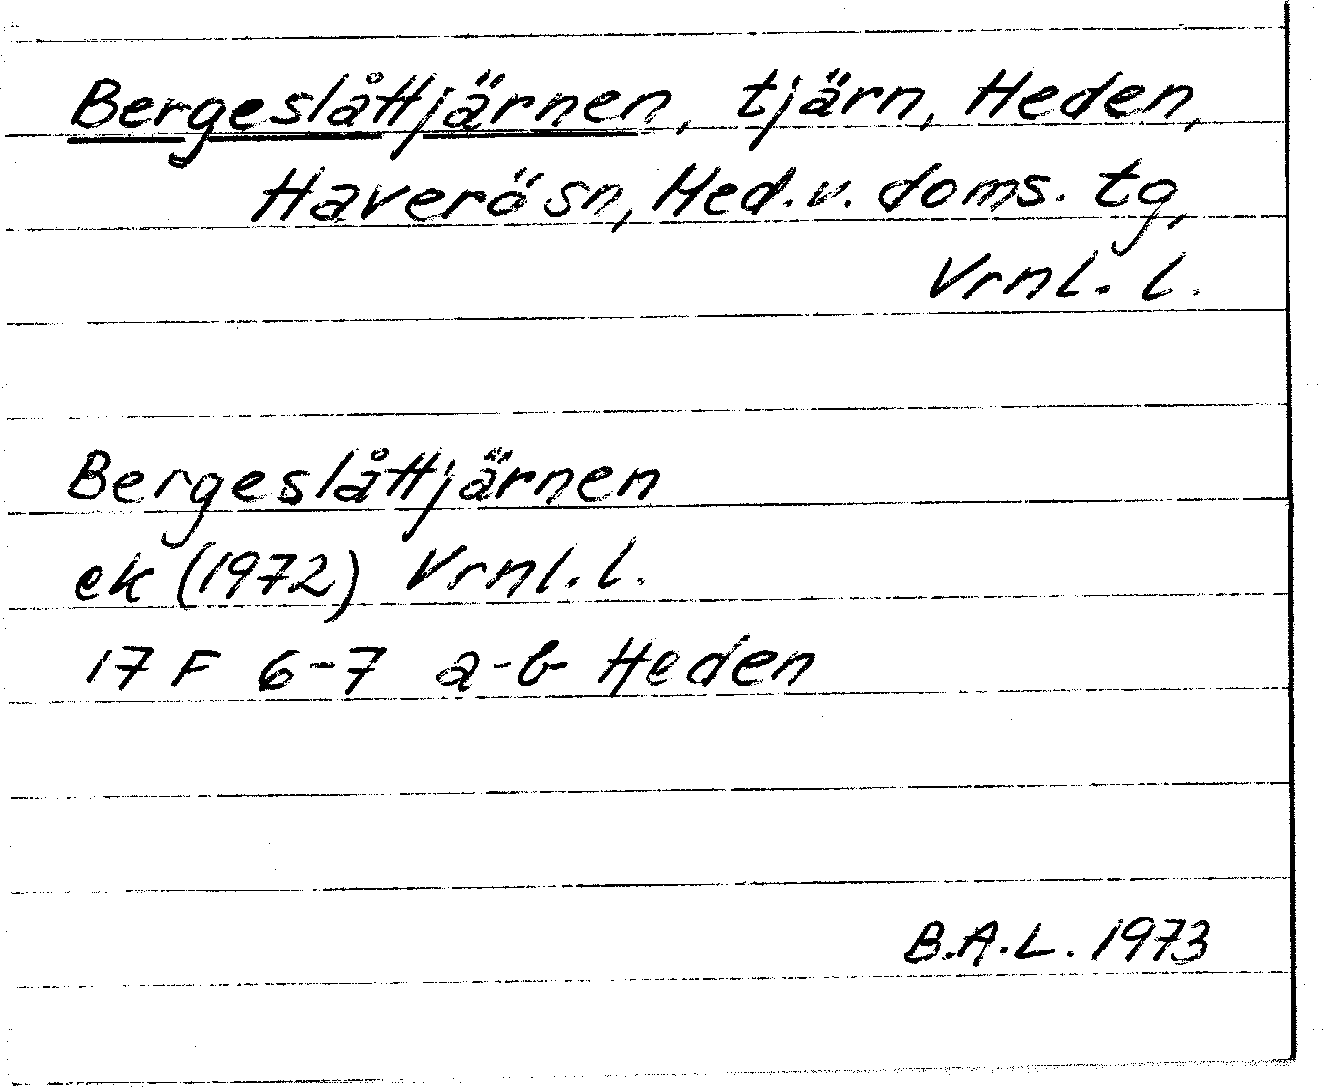 Bergeslåttjärnen, tjärn, Heden,
Haverö sn, Med. v. doms. tg,
Vrnl. l.
Bergeslåttjärnen
ek (1972) Vrnl. l.
17 F 6-7 a-b Heden
B.A.L. 1973